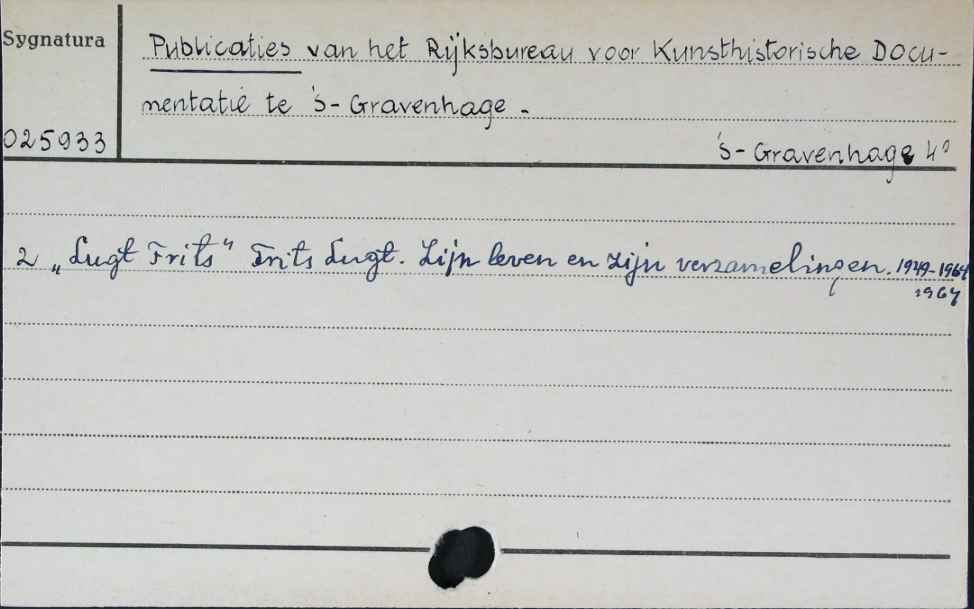 Sygnatura
Publicaties van het Rijksbureau voor Kunsthistorische Docu-
mentatie te 's-Gravenhage -
025933
's-Gravenhage 4°
2 „Lugt Frits" Frits Lugt. Zijn leven en zijn verzamelingen. 1949-1964
1964